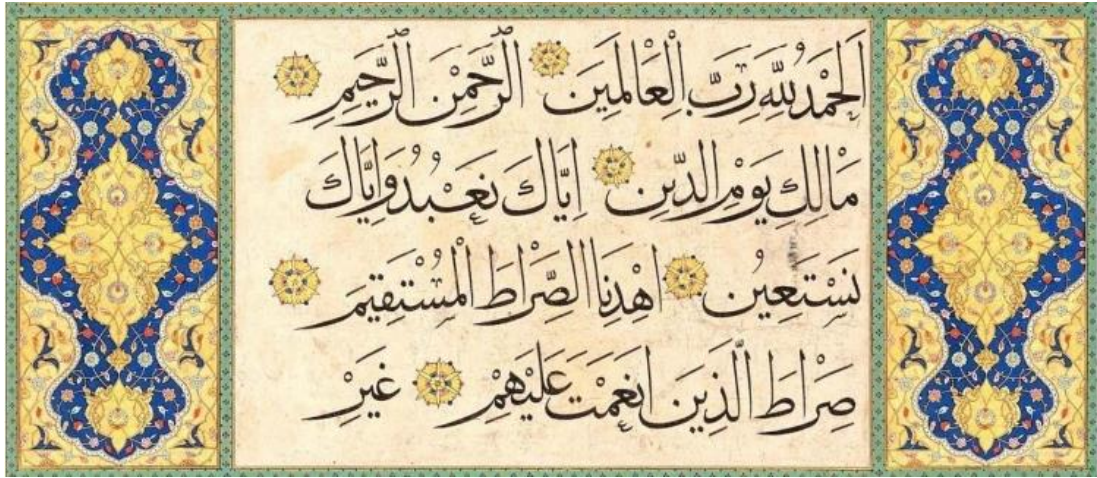 اَلْحَمْدُ لِلّٰهِ رَبِّ الْعَالَمِينَ الرَّحْمٰنِ الرَّحِيمِ
مَالِكِ يَوْمِ الدِّينِ اِيَّاكَ نَعْبُدُ وَاِيَّاكَ
نَسْتَعِينُ اِهْدِنَا الصِّرَاطَ الْمُسْتَقِيمَ
صِرَاطَ الَّذِينَ اَنْعَمْتَ عَلَيْهِمْ غَيْرِ